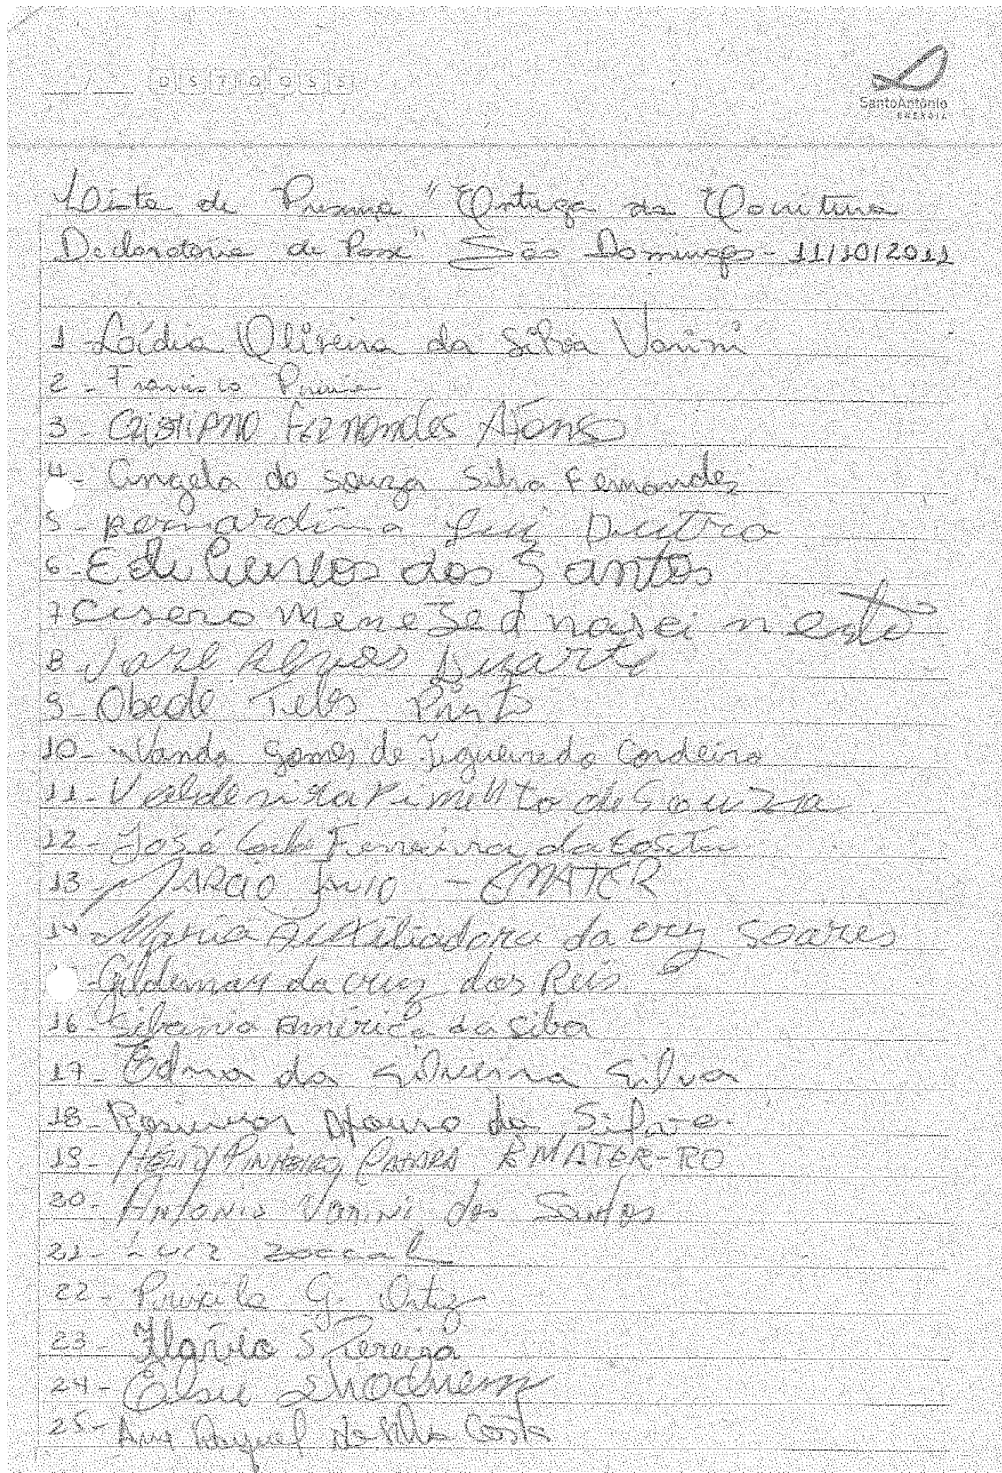 D S T Q Q S S
SantoAntônio
ENERGIA
Lista de "Entrega da Escritura
Declaratoria de Posse" São Domingos - 11/10/2011
1 - Loídia Oliveira da Silva Vanini
2 - Francisco
3 - Cristiano Fernandes Afonso
4 - Angela de Souza Silva Fernandes
5 - Bernardina Dutra
6 - Edi Carlos dos Santos
7 Cisero Meneze d nascimento
8 - José Alves Duarte
9 - Obede Teles Pinto
10 - Vanda Gomes de Figueiredo Cordeiro
11 - Valdenira Pimento de Souza
12 - José Carlos Ferreira da Costa
13 - Marcio - EMATER
14 - Maria Auxiliadora da cruz Soares
Gildemar da cruz dos Reis
16 - América da silva
17 - Edna da silveira Silva
18 - Afonso da Silva
19 - PINHEIRO EMATER-RO
20 - Antonio Vanini dos Santos
21 - Luiz Zoccal
22 - Priscila G. Ortiz
23 - Flávio S Pereira
24 - Elsie
25 - Ana Raquel Costa